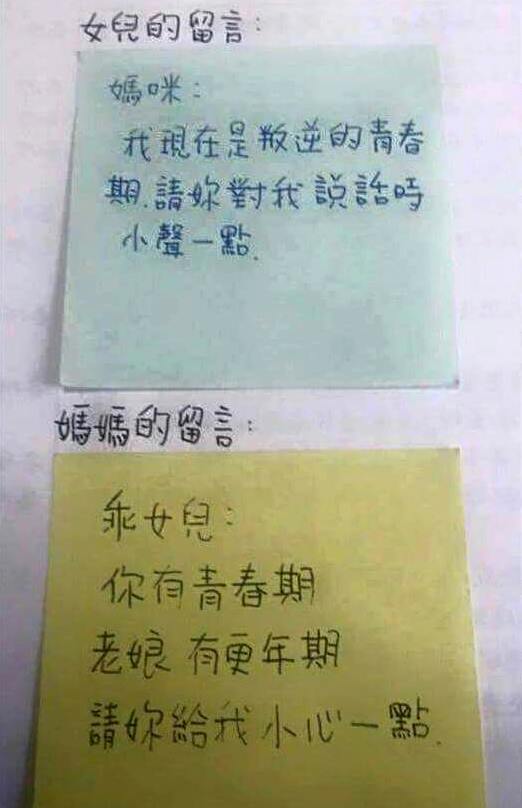 女兒的留言:
媽咪:
我現在是叛逆的青春
期.請妳對我說話時
小聲一點.
媽媽的留言:
乖女兒:
你有青春期
老娘有更年期
請妳給我小心一點.